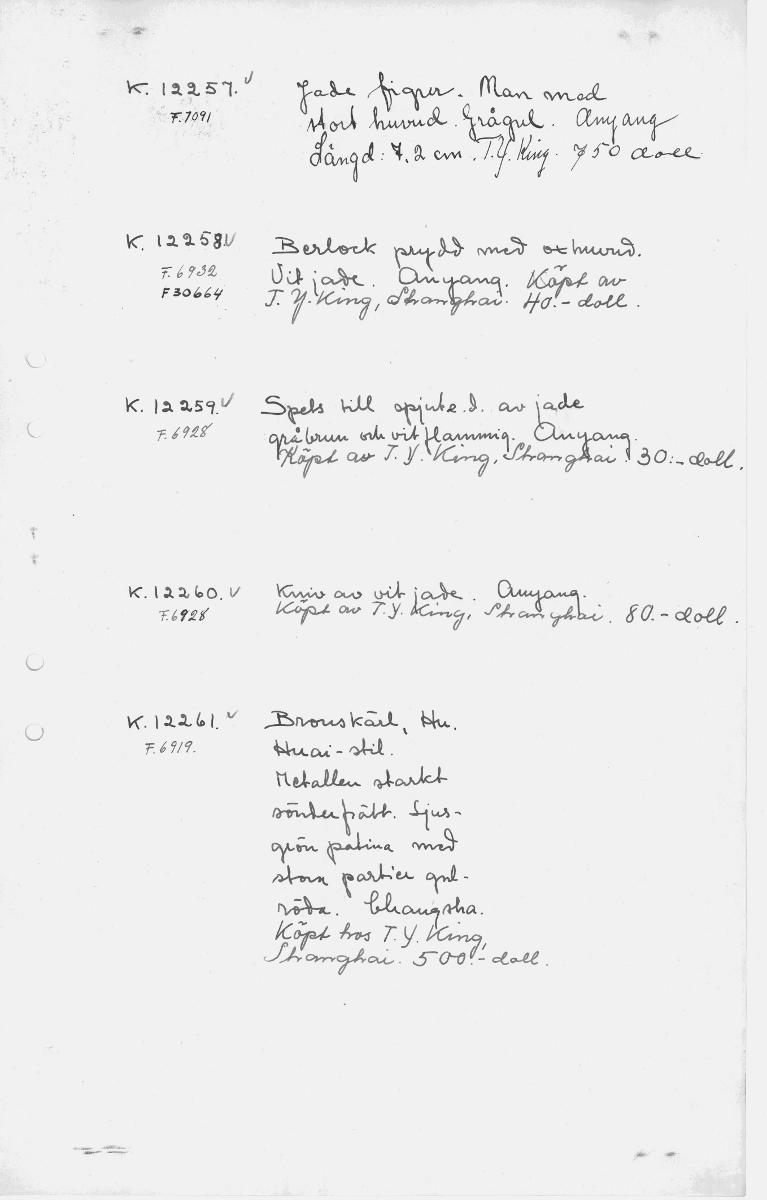 K. 12257. v Jade figur. Man med
F.7091 stort huvud. Grågul. Anyang
Längd: 7.2 cm. T.Y. King. 750 doll
K. 12258 v Berlock prydd med oxhuvud.
F.6932 Vit jade. Anyang. Köpt av
F30664 T.Y. King, Shanghai. 40.- doll.
K. 12259. v Spets till spjut e.d. av jade
F.6928 gråbrun och vit flammig. Anyang.
Köpt av T.Y. King, Shanghai. 30:- doll.
K. 12260. v Kniv av vit jade. Anyang.
F.6928 Köpt av T.Y. King, Shanghai. 80.- doll.
K. 12261. v Bronskärl, Hu.
F.6919. Huai-stil.
Metallen starkt
sönderfrätt. Ljus-
grön patina med
stora partier gul-
röda. Changsha.
Köpt hos T.Y. King,
Shanghai. 500:- doll.